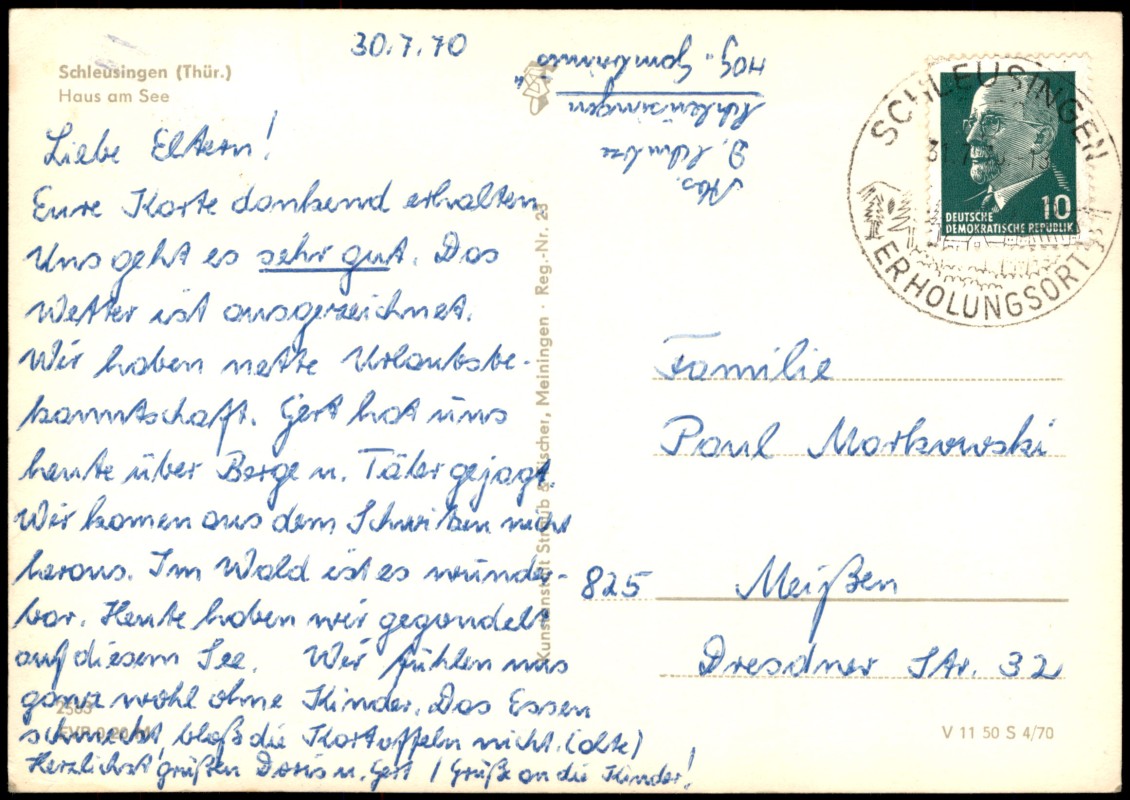 30.7.70
Schleusingen (Thür.)
Haus am See
Liebe Eltern!
Eure Karte dankend erhalten
Uns geht es sehr gut. Das
Wetter ist ausgezeichnet.
Wir haben nette Urlaubsbe-
kanntschaft. Gert hat uns
heute über Berge u. Täler gejagt.
Wir kamen aus dem Schwitzen nicht
heraus. Im Wald ist es wunder-
bar. Heute haben wir gegondelt
auf diesem See. Wir fühlen uns
ganz wohl ohne Kinder. Das Essen
schmeckt, bloß die Kartoffeln nicht. (alte)
Herzlichst grüßen Doris u. Gert / Grüße an die Kinder!
2563
EVP 0,20 M
Abs.
D. Schulze
Schleusingen
HOG. "Gambrinus"
Kunstanstalt Straub & Fischer, Meiningen · Reg.-Nr. 23
SCHLEUSINGEN
31.7.70-13
ERHOLUNGSORT
10
DEUTSCHE
DEMOKRATISCHE REPUBLIK
Familie
Paul Markowski
825 Meißen
Dresdner Str. 32
V 11 50 S 4/70